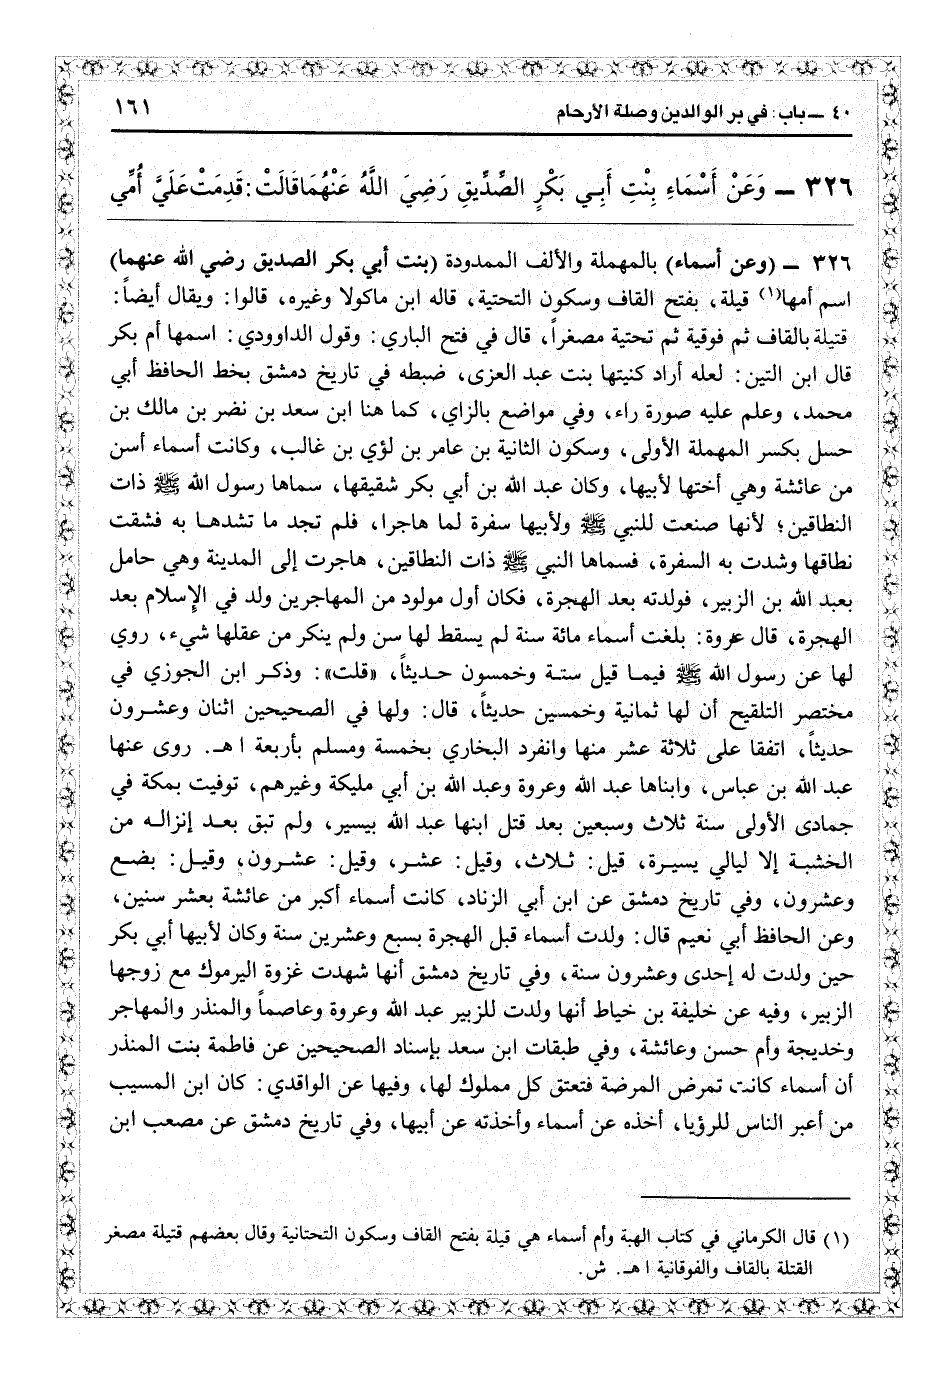 ٤٠ ــ باب: في بر الوالدين وصلة الأرحام ١٦١
٣٢٦ ــ وَعَنْ أَسْمَاءِ بِنْتِ أَبِي بَكْرٍ الصِّدِّيقِ رَضِيَ اللَّهُ عَنْهُمَا قَالَتْ: قَدِمَتْ عَلَيَّ أُمِّي
٣٢٦ ــ (وعن أسماء) بالمهملة والألف الممدودة (بنت أبي بكر الصديق رضي الله عنهما)
اسم أمها(١) قيلة، بفتح القاف وسكون التحتية، قاله ابن ماكولا وغيره، قالوا: ويقال أيضاً:
قتيلة بالقاف ثم فوقية ثم تحتية مصغراً، قال في فتح الباري: وقول الداوودي: اسمها أم بكر
قال ابن التين: لعله أراد كنيتها بنت عبد العزى، ضبطه في تاريخ دمشق بخط الحافظ أبي
محمد، وعلم عليه صورة راء، وفي مواضع بالزاي، كما هنا ابن سعد بن نضر بن مالك بن
حسل بكسر المهملة الأولى، وسكون الثانية بن عامر بن لؤي بن غالب، وكانت أسماء أسن
من عائشة وهي أختها لأبيها، وكان عبد الله بن أبي بكر شقيقها، سماها رسول الله ﷺ ذات
النطاقين؛ لأنها صنعت للنبي ﷺ ولأبيها سفرة لما هاجرا، فلم تجد ما تشدها به فشقت
نطاقها وشدت به السفرة، فسماها النبي ﷺ ذات النطاقين، هاجرت إلى المدينة وهي حامل
بعبد الله بن الزبير، فولدته بعد الهجرة، فكان أول مولود من المهاجرين ولد في الإسلام بعد
الهجرة، قال عروة: بلغت أسماء مائة سنة لم يسقط لها سن ولم ينكر من عقلها شيء، روي
لها عن رسول الله ﷺ فيما قيل ستة وخمسون حديثاً، «قلت»: وذكر ابن الجوزي في
مختصر التلقيح أن لها ثمانية وخمسين حديثاً، قال: ولها في الصحيحين اثنان وعشرون
حديثاً، اتفقا على ثلاثة عشر منها وانفرد البخاري بخمسة ومسلم بأربعة ا هـ. روى عنها
عبد الله بن عباس، وابناها عبد الله وعروة وعبد الله بن أبي مليكة وغيرهم، توفيت بمكة في
جمادى الأولى سنة ثلاث وسبعين بعد قتل ابنها عبد الله بيسير، ولم تبق بعد إنزاله من
الخشبة إلا ليالي يسيرة، قيل: ثلاث، وقيل: عشر، وقيل: عشرون، وقيل: بضع
وعشرون، وفي تاريخ دمشق عن ابن أبي الزناد، كانت أسماء أكبر من عائشة بعشر سنين،
وعن الحافظ أبي نعيم قال: ولدت أسماء قبل الهجرة بسبع وعشرين سنة وكان لأبيها أبي بكر
حين ولدت له إحدى وعشرون سنة، وفي تاريخ دمشق أنها شهدت غزوة اليرموك مع زوجها
الزبير، وفيه عن خليفة بن خياط أنها ولدت للزبير عبد الله وعروة وعاصماً والمنذر والمهاجر
وخديجة وأم حسن وعائشة، وفي طبقات ابن سعد بإسناد الصحيحين عن فاطمة بنت المنذر
أن أسماء كانت تمرض المرضة فتعتق كل مملوك لها، وفيها عن الواقدي: كان ابن المسيب
من أعبر الناس للرؤيا، أخذه عن أسماء وأخذته عن أبيها، وفي تاريخ دمشق عن مصعب ابن
(١) قال الكرماني في كتاب الهبة وأم أسماء هي قيلة بفتح القاف وسكون التحتانية وقال بعضهم قتيلة مصغر
القتلة بالقاف والفوقانية ا هـ. ش.